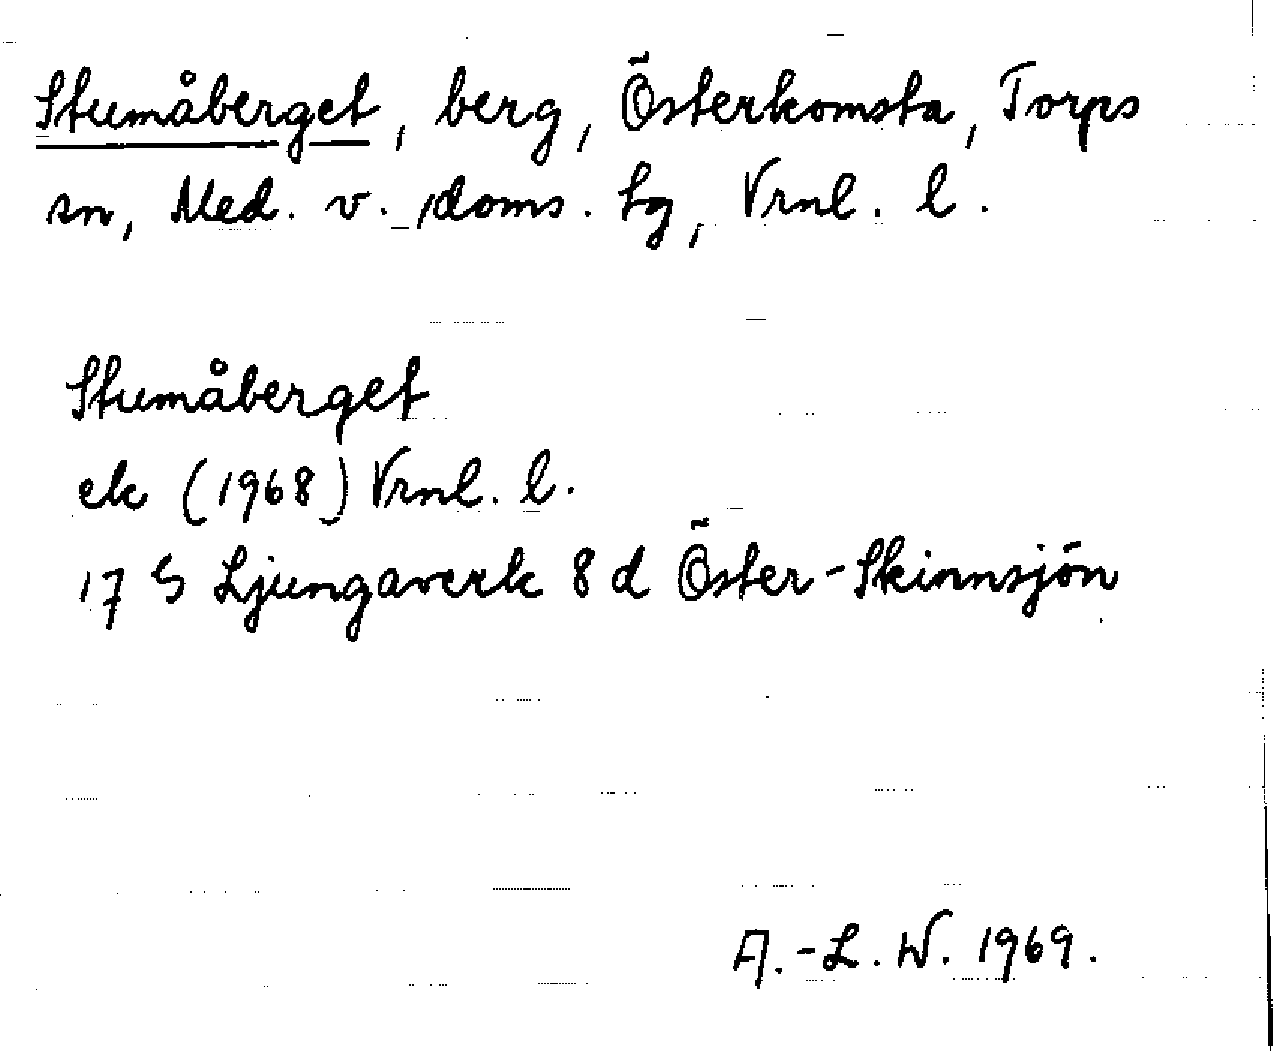 Stumåberget, berg, Österkomsta, Torps
sn, Med. v. doms. tg, Vrnl. l.
Stumåberget
ek (1968) Vrnl. l.
17 G Ljungaverk 8 d Öster-Skinnsjön
A.-L. W. 1969.